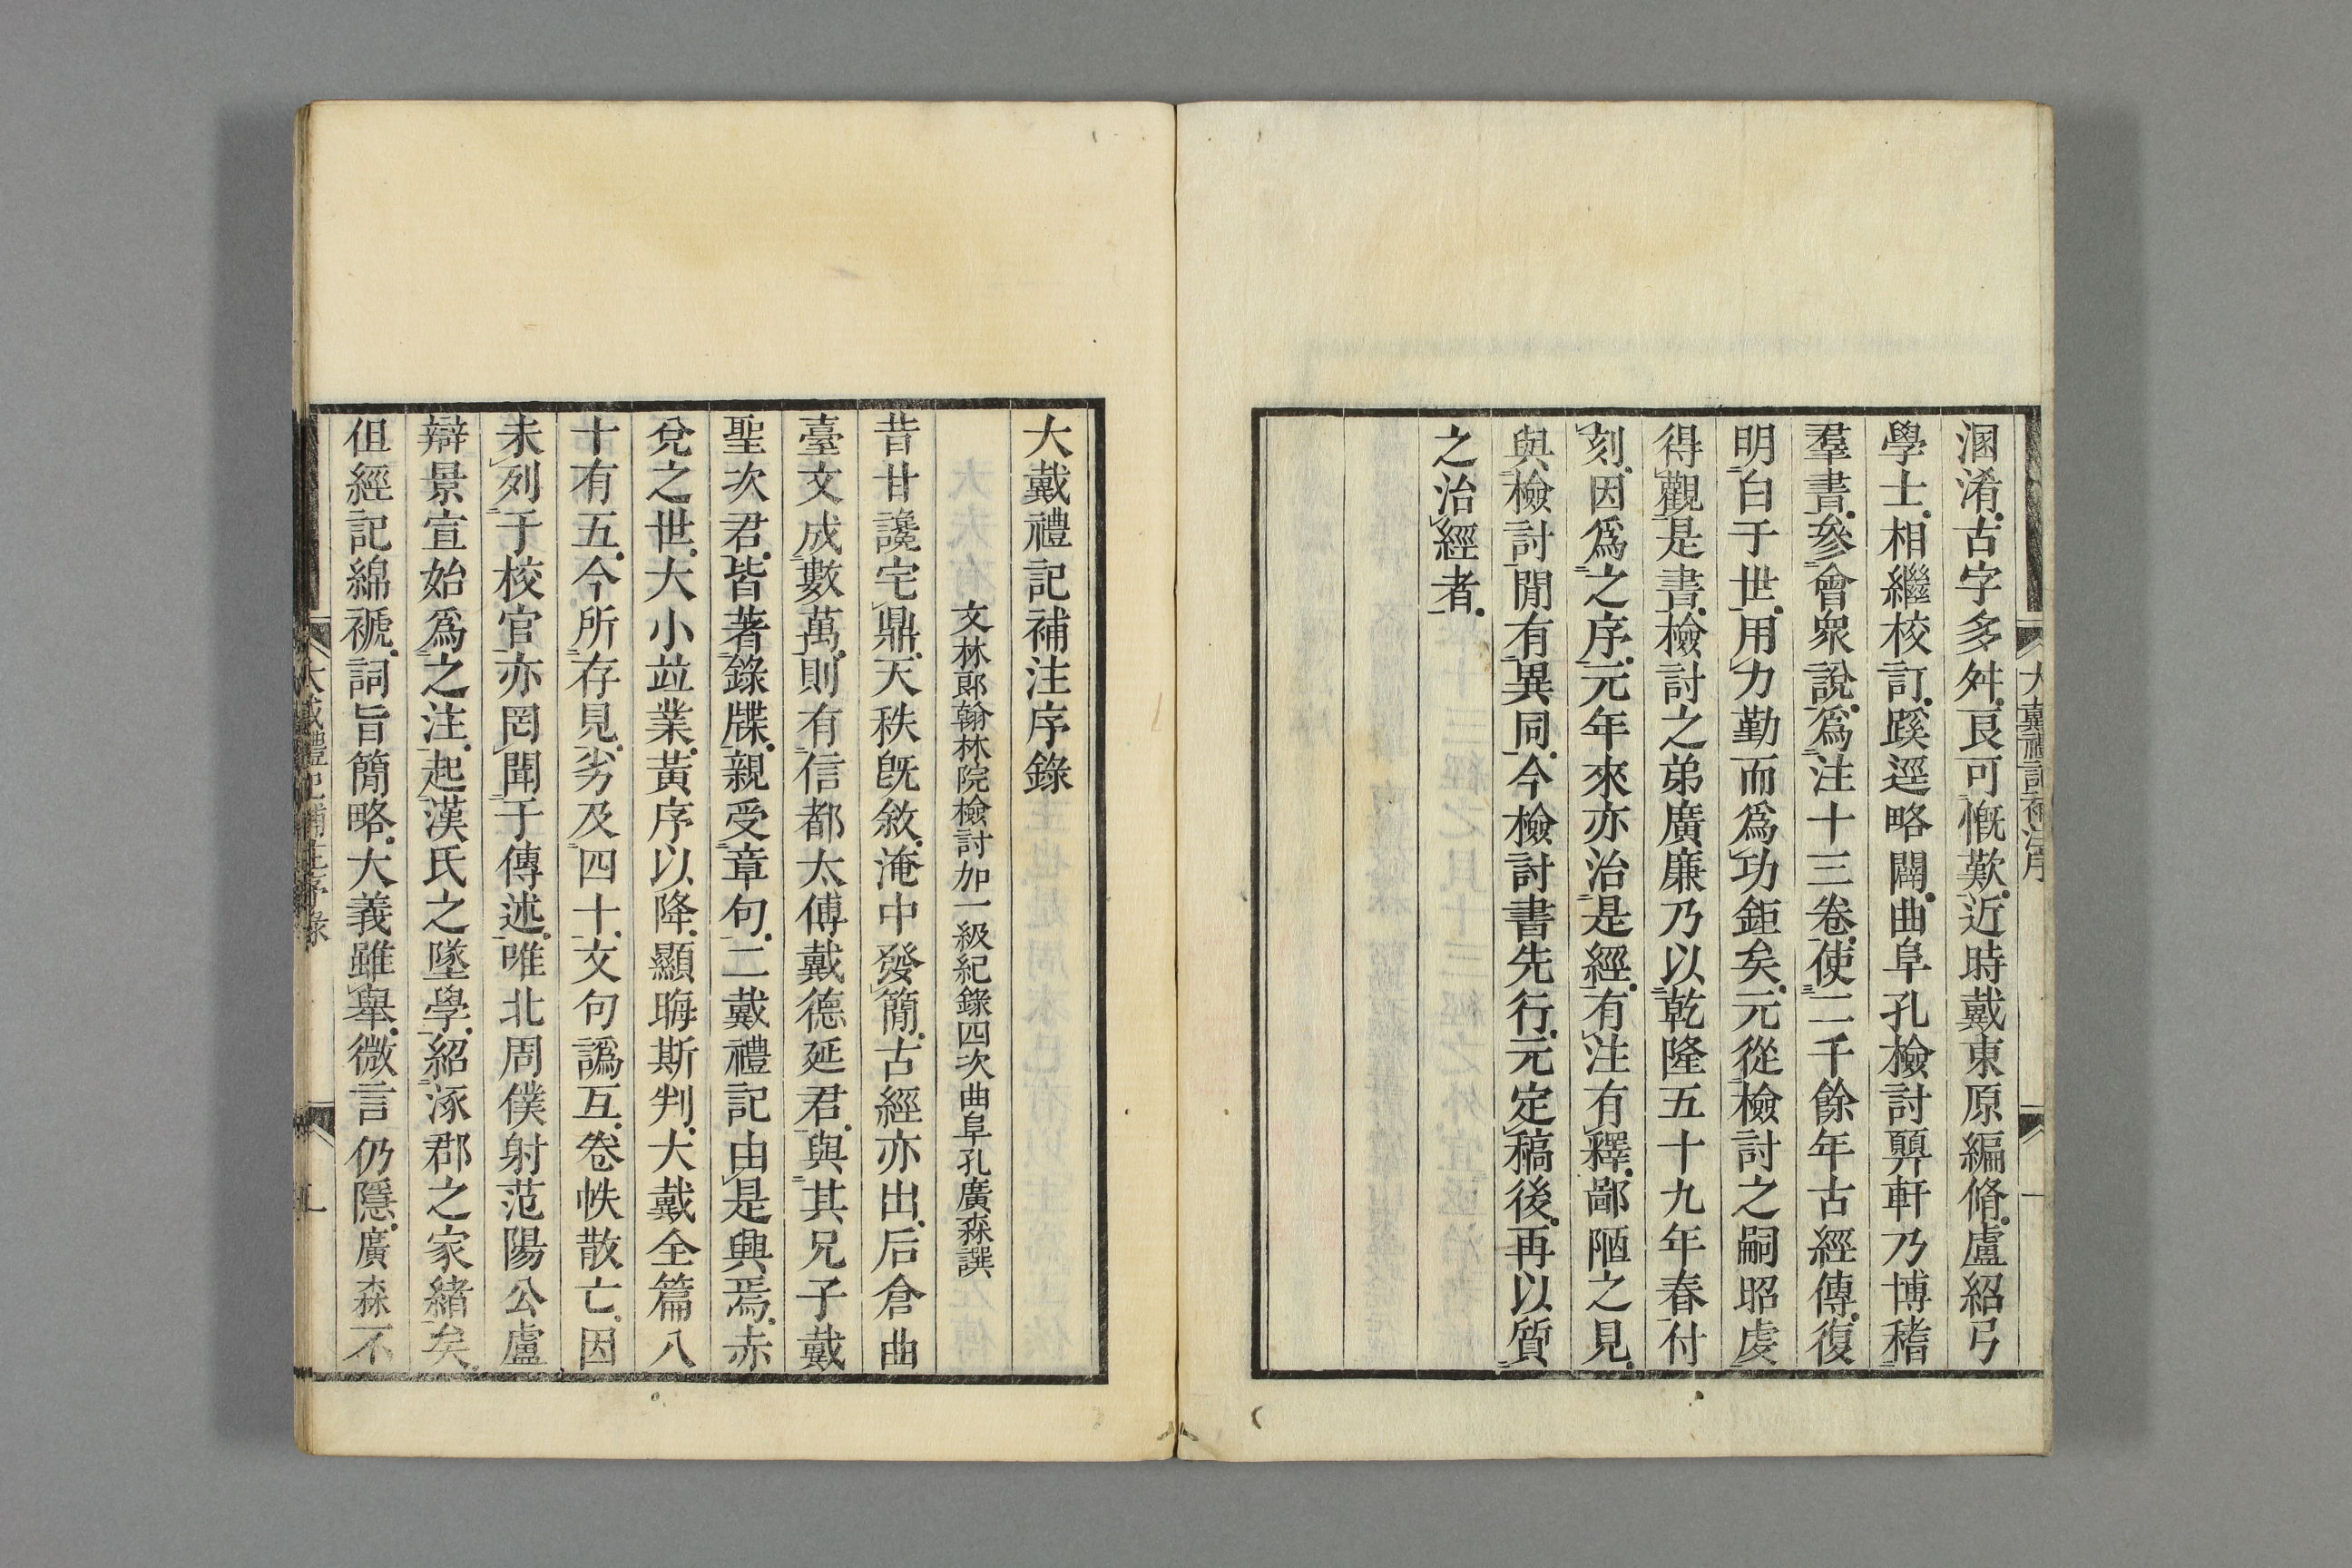 大戴禮記補注序
一
溷淆古字多舛良可慨歎近時戴東原編脩盧紹弓
學士相繼校訂蹊逕略闢曲阜孔檢討顨軒乃博稽
羣書參會衆說爲注十三卷使二千餘年古經傳復
明白于世用力勤而爲功鉅矣元從檢討之嗣昭虔
得觀是書檢討之弟廣廉乃以乾隆五十九年春付
刻因爲之序元年來亦治是經有注有釋鄙陋之見
與檢討閒有異同今檢討書先行元定稿後再以質
之治經者
大戴禮記補注序錄
文林郎翰林院檢討加一級紀錄四次曲阜孔廣森譔
昔甘讒宅鼎天秩旣敘淹中發簡古經亦出后倉曲
臺文成數萬則有信都太傅戴德延君與其兄子戴
聖次君皆著錄牒親受章句二戴禮記由是興焉赤
兊之世大小竝業黃序以降顯晦斯判大戴全篇八
十有五今所存見劣及四十文句譌互卷帙散亡因
未列于校官亦罔聞于傳述唯北周僕射范陽公盧
辯景宣始爲之注起漢氏之墜學紹涿郡之家緒矣
但經記綿褫詞旨簡略大義雖舉微言仍隱廣森不
大戴禮記補注序錄
一